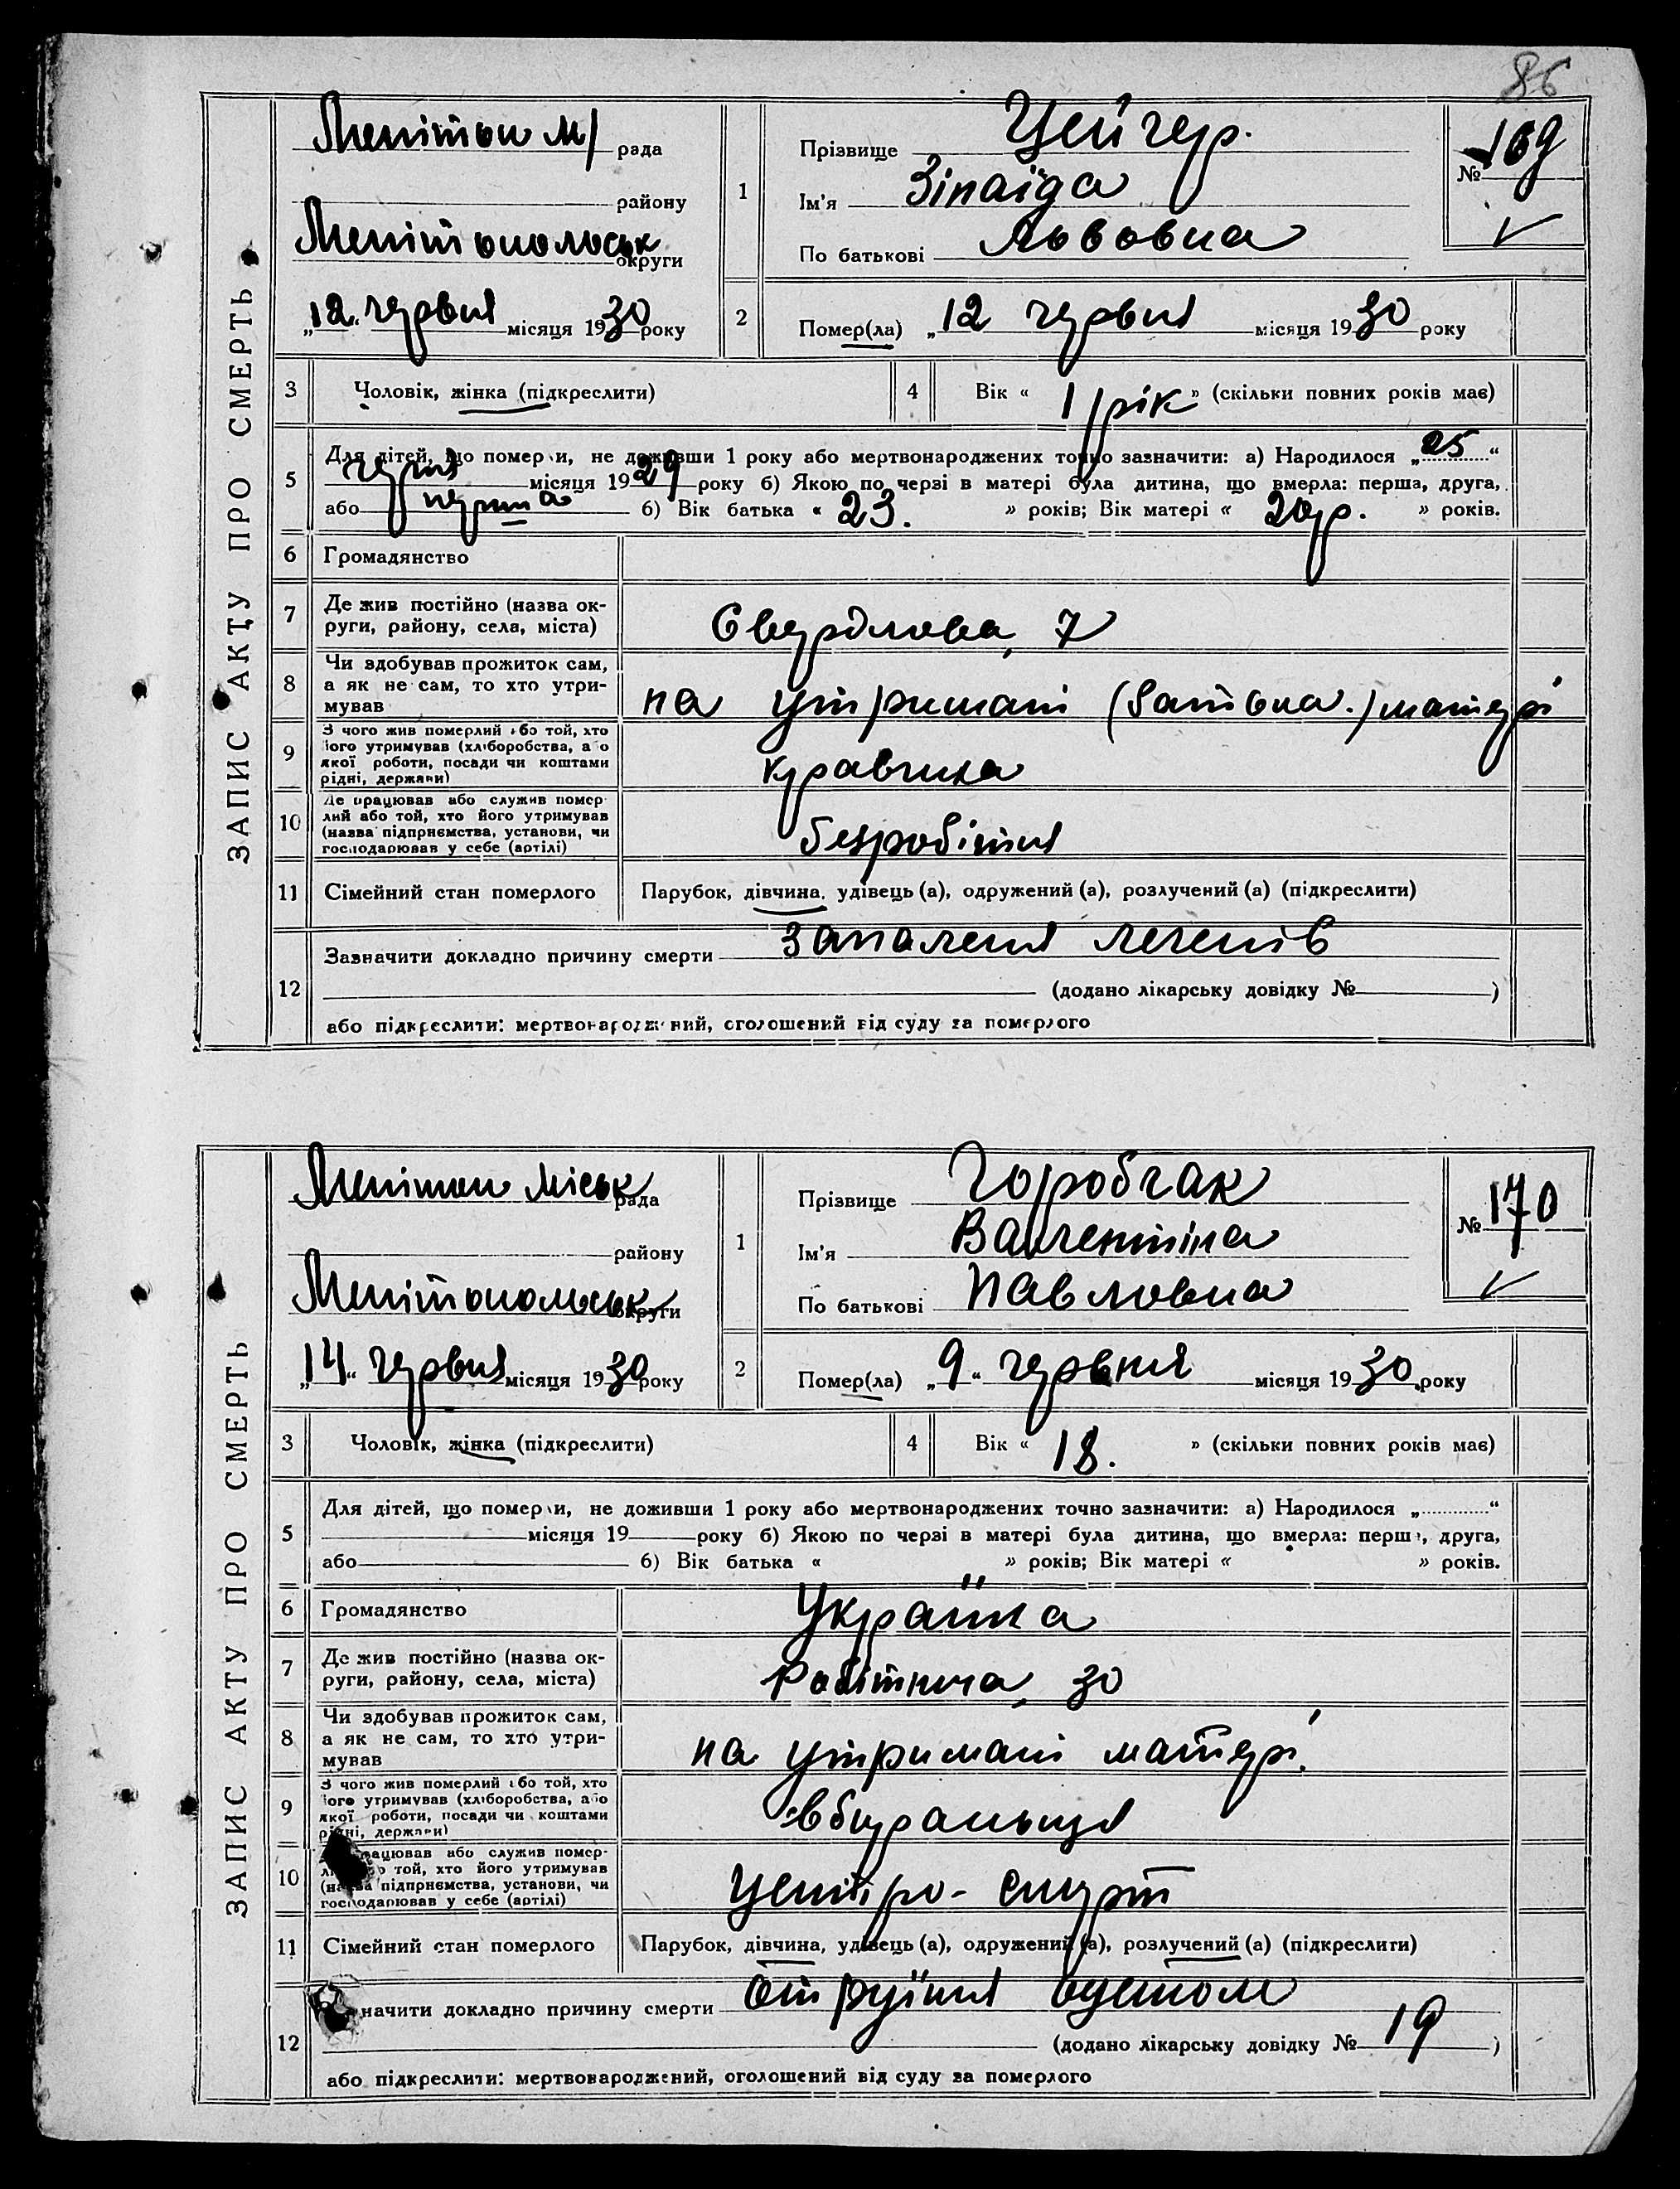 86
ЗАПИС АКТУ ПРО СМЕРТЬ
Меліт м/ рада
району
Мелітопольськ округи
„12“ червня місяця 1930 року
1
Прізвище Цейгер.
Ім'я Зінаїда
По батькові Львовна
№ 169
2
Помер(ла) „12 червня місяця 1930 року
3
Чоловік, жінка (підкреслити)
4
Вік « 1 рік » (скільки повних років має)
5
Для дітей, що померли, не доживши 1 року або мертвонароджених точно зазначити: а) Народилося „25“
червня місяця 1929 року б) Якою по черзі в матері була дитина, що вмерла: перша, друга,
або перша б) Вік батька « 23. » років; Вік матері « 20 р. » років.
6
Громадянство
7
Де жив постійно (назва ок-
руги, району, села, міста)
Свердлова, 7
8
Чи здобував прожиток сам,
а як не сам, то хто утри-
мував
на утримані матері
9
З чого жив померлий або той, хто
його утримував (хліборобства, або
якої роботи, посади чи коштами
рідні, держави)
кравчиха
10
Де працював або служив помер-
лий або той, хто його утримував
(назва підприємства, установи, чи
господарював у себе (артілі)
безробітня
11
Сімейний стан померлого
Парубок, дівчина, удівець (а), одружений (а), розлучений (а) (підкреслити)
12
Зазначити докладно причину смерти запаленя легенів
(додано лікарську довідку № )
або підкреслити: мертвонароджений, оголошений від суду за померлого
ЗАПИС АКТУ ПРО СМЕРТЬ
Меліт міськ рада
району
Мелітопольськ округи
„14“ червня місяця 1930 року
1
Прізвище Горобчак
Ім'я Валентіна
По батькові Павловна
№ 170
2
Помер(ла) „9“ червня місяця 1930 року
3
Чоловік, жінка (підкреслити)
4
Вік « 18. » (скільки повних років має)
5
Для дітей, що померли, не доживши 1 року або мертвонароджених точно зазначити: а) Народилося „ “
місяця 19 року б) Якою по черзі в матері була дитина, що вмерла: перша, друга,
або б) Вік батька « » років; Вік матері « » років.
6
Громадянство
Украінка
7
Де жив постійно (назва ок-
руги, району, села, міста)
Робітнича, 30
8
Чи здобував прожиток сам,
а як не сам, то хто утри-
мував
на утримані матері
9
З чого жив померлий або той, хто
його утримував (хліборобства, або
якої роботи, посади чи коштами
рідні, держави)
вбиральщя
10
працював або служив помер-
той, хто його утримував
(назва підприємства, установи, чи
господарював у себе (артілі)
Центро-спирт
11
Сімейний стан померлого
Парубок, дівчина, удівець (а), одружений (а), розлучений (а) (підкреслити)
12
значити докладно причину смерти отруїння оцетом
(додано лікарську довідку № 19 )
або підкреслити: мертвонароджений, оголошений від суду за померлого